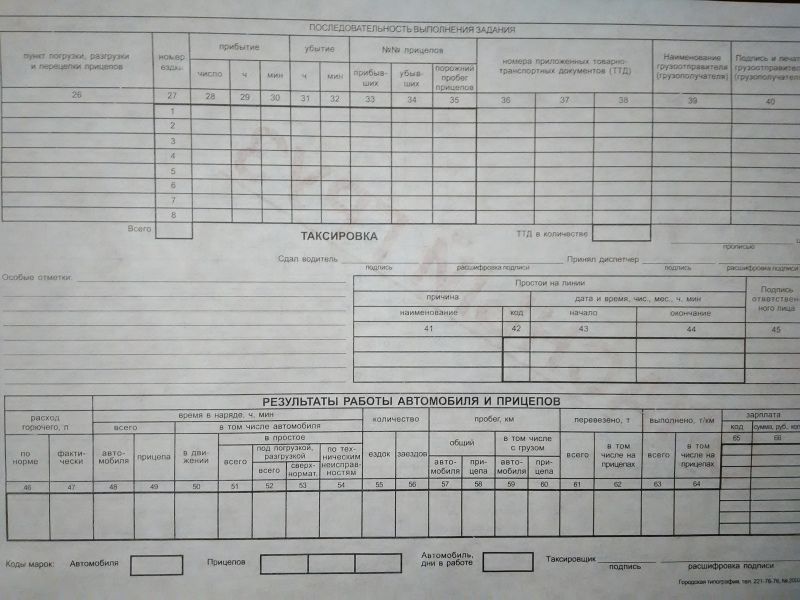 ПОСЛЕДОВАТЕЛЬНОСТЬ ВЫПОЛНЕНИЯ ЗАДАНИЯ
пункт погрузки, разгрузки
и перецепки прицепов
номер
ездки
прибытие
число ч мин
убытие
ч мин
№№ прицепов
прибыв-
ших
убыв-
ших
порожний
пробег
прицепов
номера приложенных товарно-
транспортных документов (ТТД)
Наименование
грузоотправителя
(грузополучателя)
Подпись и печат
грузоотправител
(грузополучател
26 27 28 29 30 31 32 33 34 35 36 37 38 39 40
1
2
3
4
5
6
7
8
Всего
ТАКСИРОВКА
ТТД в количестве
прописью
Сдал водитель
подпись
расшифровка подписи
Принял диспетчер
подпись
расшифровка подписи
Особые отметки:
Простои на линии
причина
дата и время, чис., мес., ч. мин
Подпись
ответствен-
ного лица
наименование код начало окончание
41 42 43 44 45
РЕЗУЛЬТАТЫ РАБОТЫ АВТОМОБИЛЯ И ПРИЦЕПОВ
расход
горючего, л
время в наряде, ч. мин
всего
в том числе автомобиля
в простое
под погрузкой,
разгрузкой
количество
пробег, км
общий
в том числе
с грузом
перевезено, т
выполнено, т/км
зарплата
код сумма, руб. коп
65 66
по
норме
факти-
чески
авто-
мобиля
прицепа
в дви-
жении
всего
всего
сверх-
нормат.
по тех-
ническим
неисправ-
ностям
ездок
заездов
авто-
мобиля
при-
цепа
авто-
мобиля
при-
цепа
всего
в том
числе на
прицепах
всего
в том
числе на
прицепах
46 47 48 49 50 51 52 53 54 55 56 57 58 59 60 61 62 63 64
Коды марок: Автомобиля
Прицепов
Автомобиль,
дни в работе
Таксировщик
подпись
расшифровка подписи
Городская типография, тел. 221-76-76,